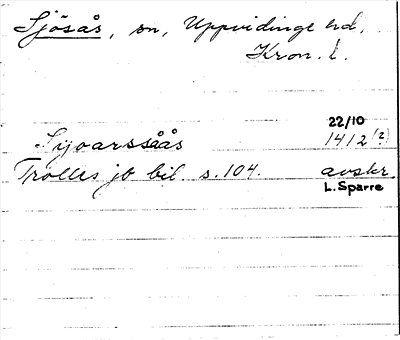 Sjösås, sn, Uppvidinge hd,
Kron. l.
22/10
Syoarssåås 1412 (?)
Trolles jb bil. s. 104. avskr.
L. Sparre